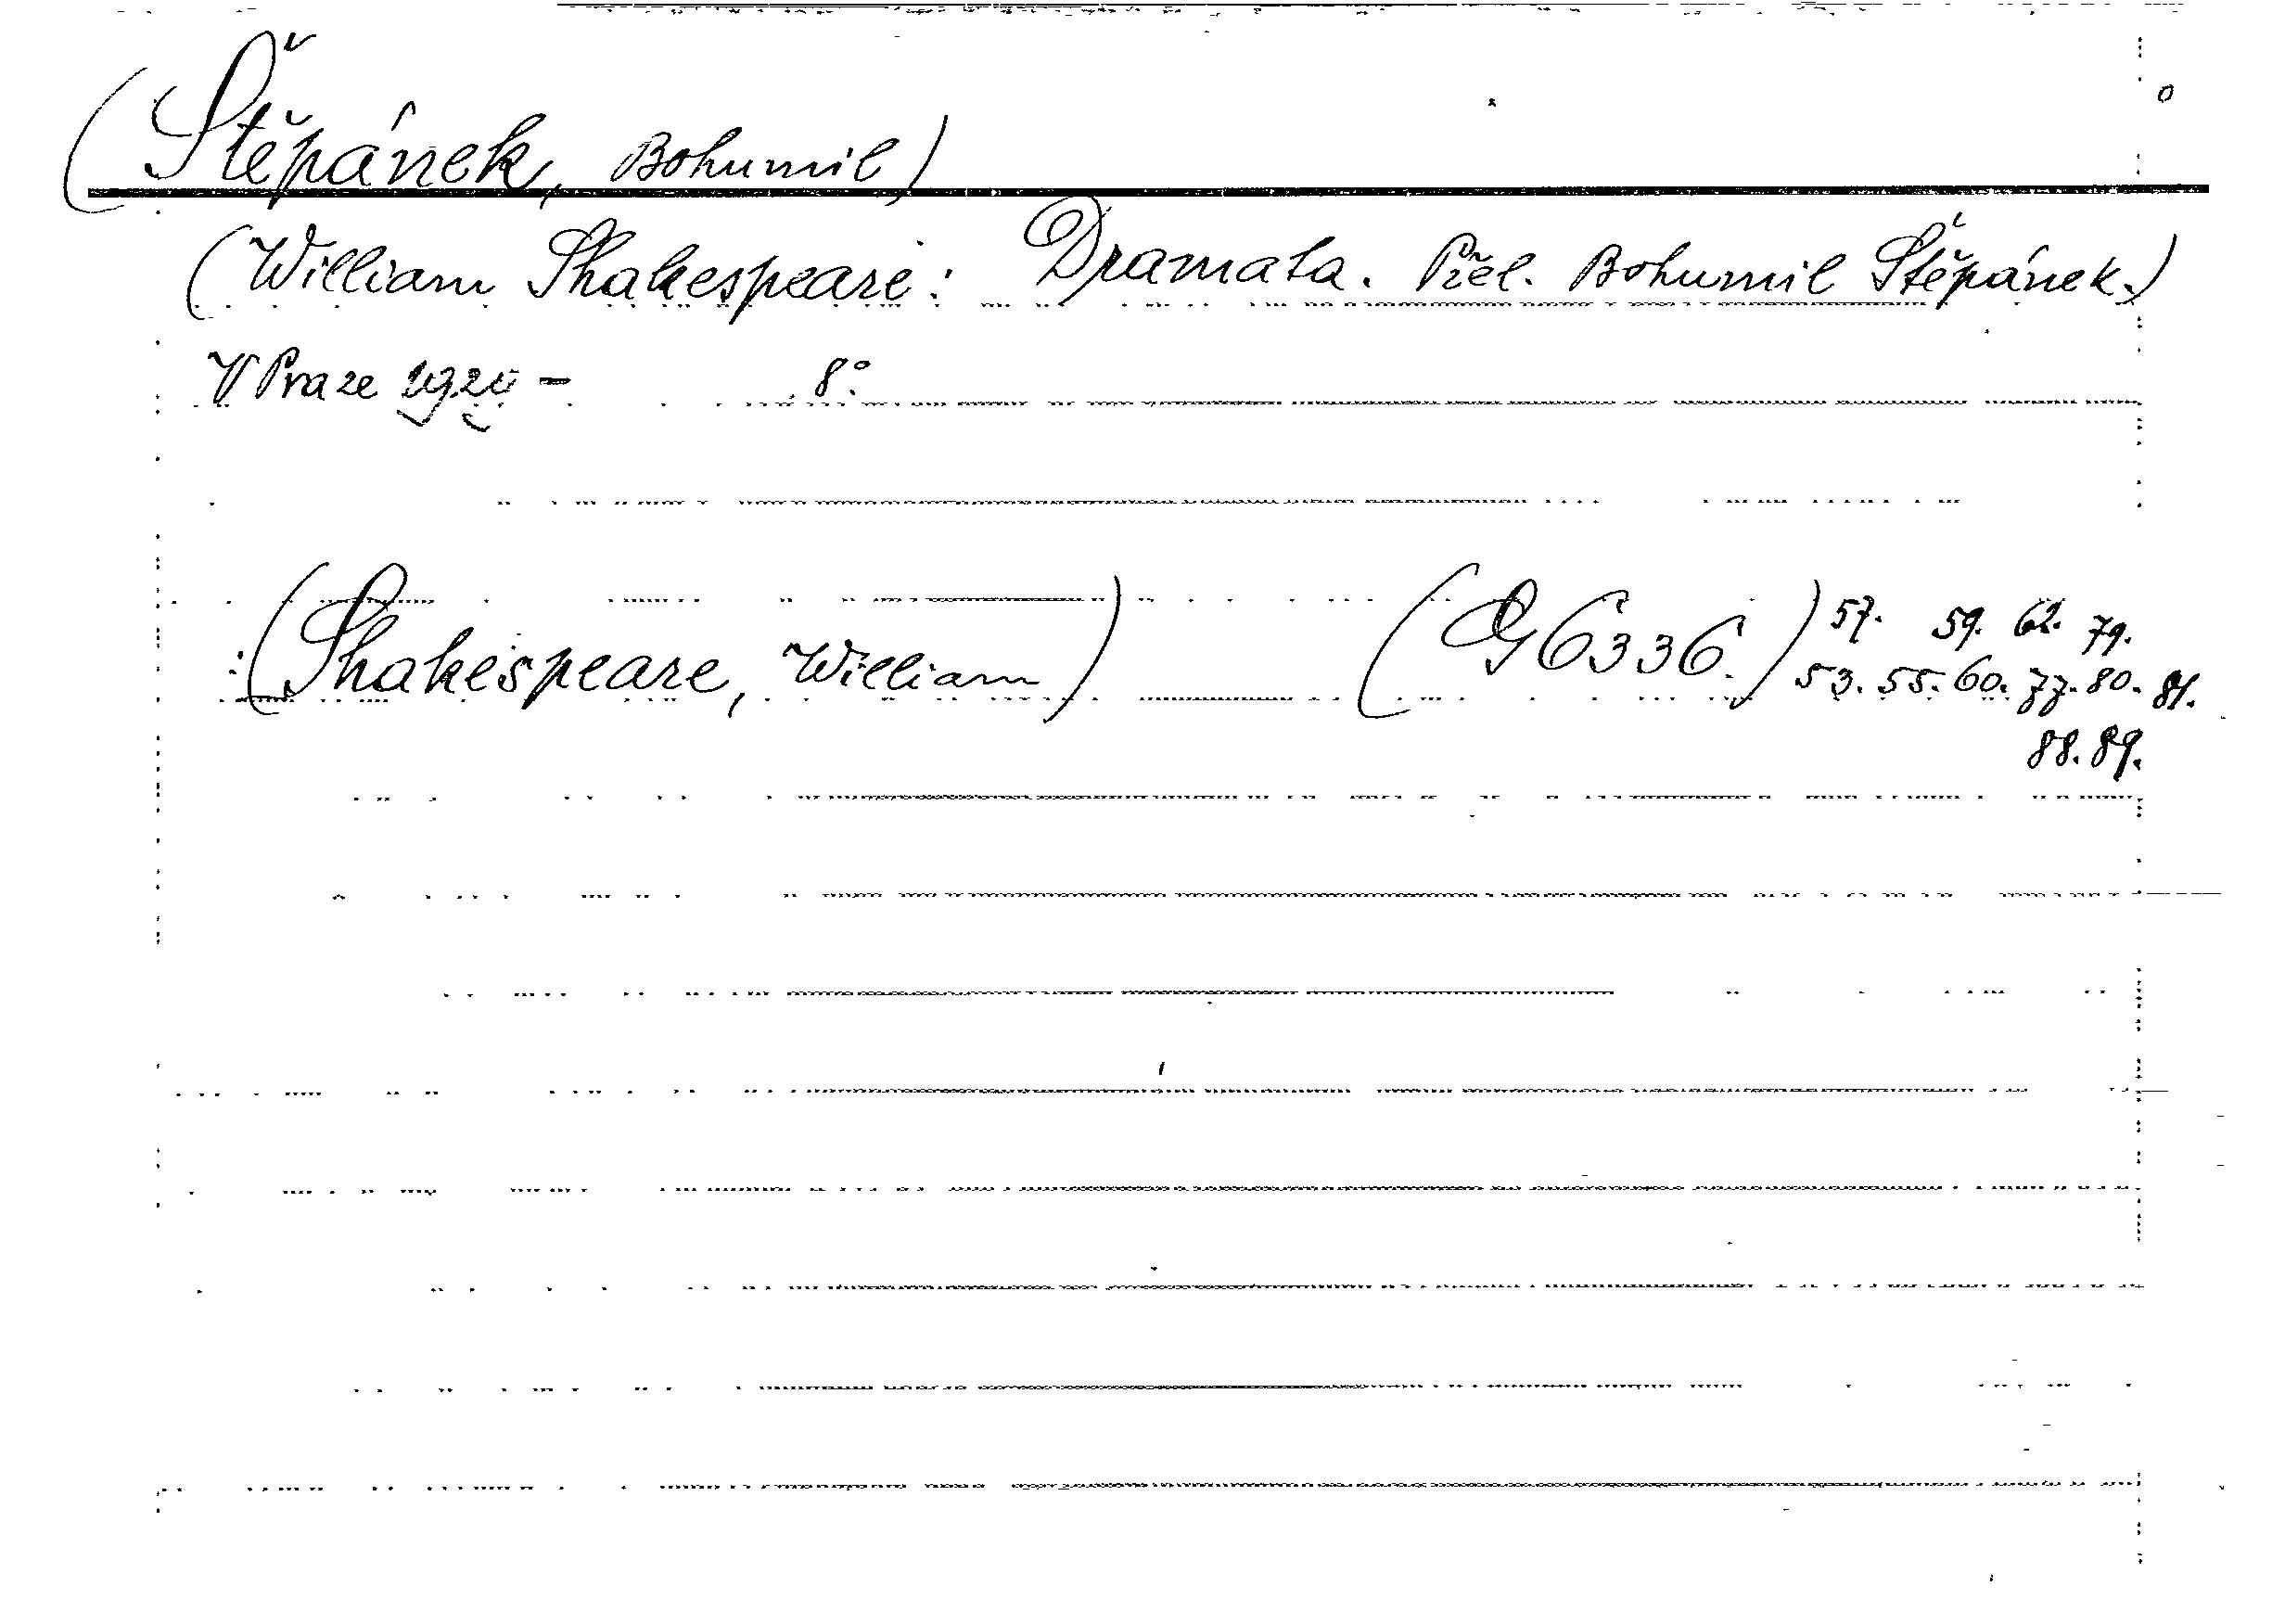 (Štěpánek, Bohumil)
(William Shakespeare: Dramata. Přel. Bohumil Štěpánek.)
V Praze 8°
:(Shakespeare, William) (G 6336.) 57. 59. 62. 79.
53. 55. 60. 77. 80. 81.
88. 89.